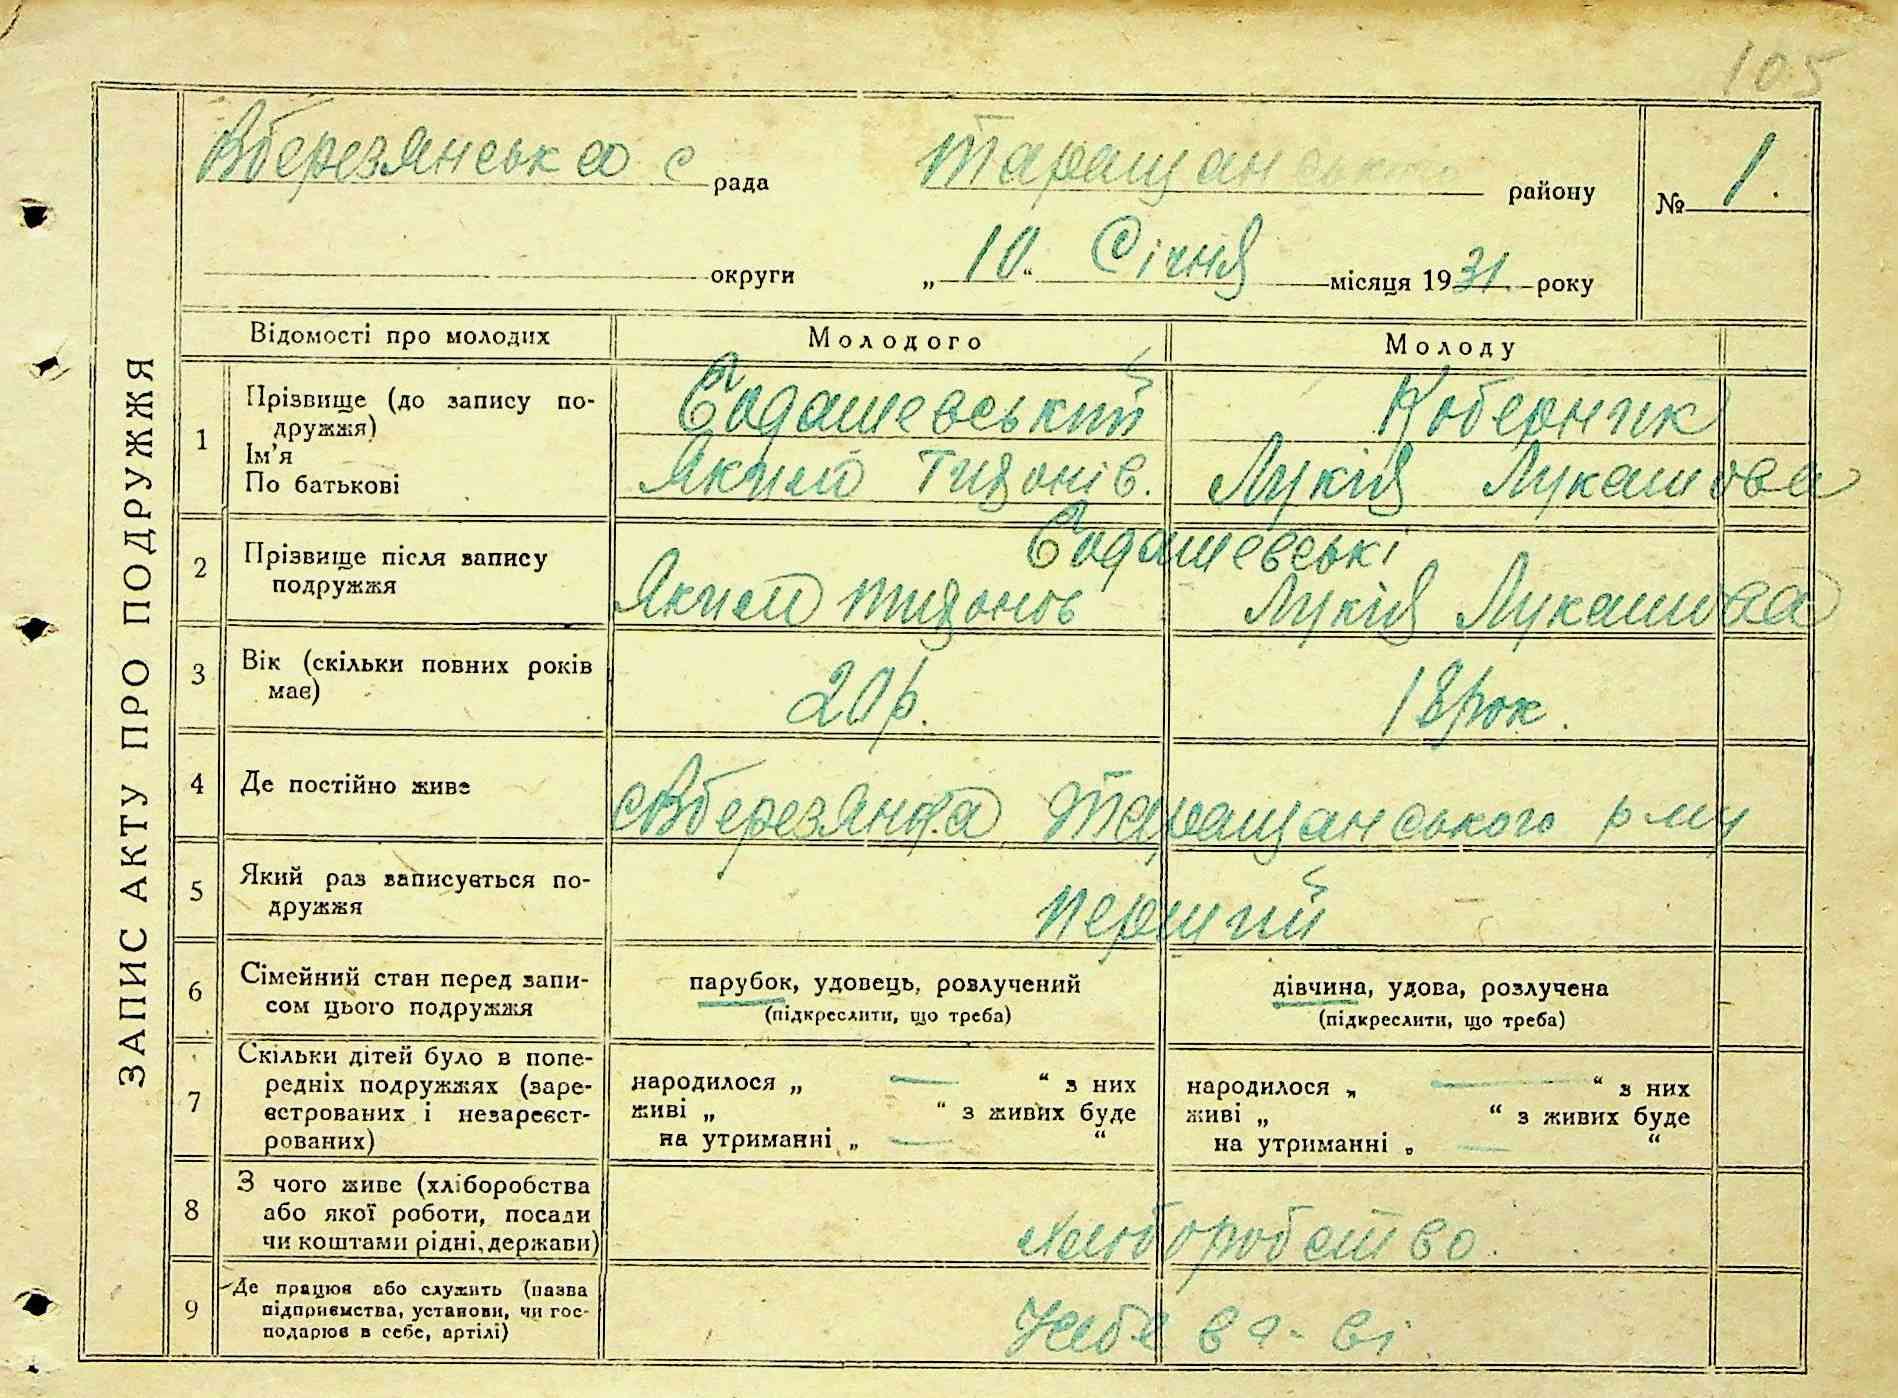 105
Вберезянська с рада Таращанського району № 1.
округи „10“ Січня місяця 1931 року
ЗАПИС АКТУ ПРО ПОДРУЖЖЯ
Відомості про молодих Молодого Молоду
1 Прізвище (до запису по-
дружжя)
Ім'я
По батькові
Содашевський Коберник
Яким Тихонів. Лукія Лукашова
2 Прізвище після запису
подружжя
Содашевські
Яким Тихонов Лукія Лукашова
3 Вік (скільки повних років
має)
20 р. 18 рок.
4 Де постійно живе
с Вберезянка Таращанського р-ну
5 Який раз записується по-
дружжя
перший
6 Сімейний стан перед запи-
сом цього подружжя
парубок, удовець, розлучений
(підкреслити, що треба)
дівчина, удова, розлучена
(підкреслити, що треба)
7 Скільки дітей було в попе-
редніх подружжях (заре-
єстрованих і незареєст-
рованих)
народилося „ — “ з них
живі „ “ з живих буде
на утриманні „ — “
народилося „ — “ з них
живі „ “ з живих буде
на утриманні „ — “
8 З чого живе (хліборобства
або якої роботи, посади
чи коштами рідні, держави)
хліборобство.
9 Де працює або служить (назва
підприємства, установи, чи гос-
подарює в себе, артілі)